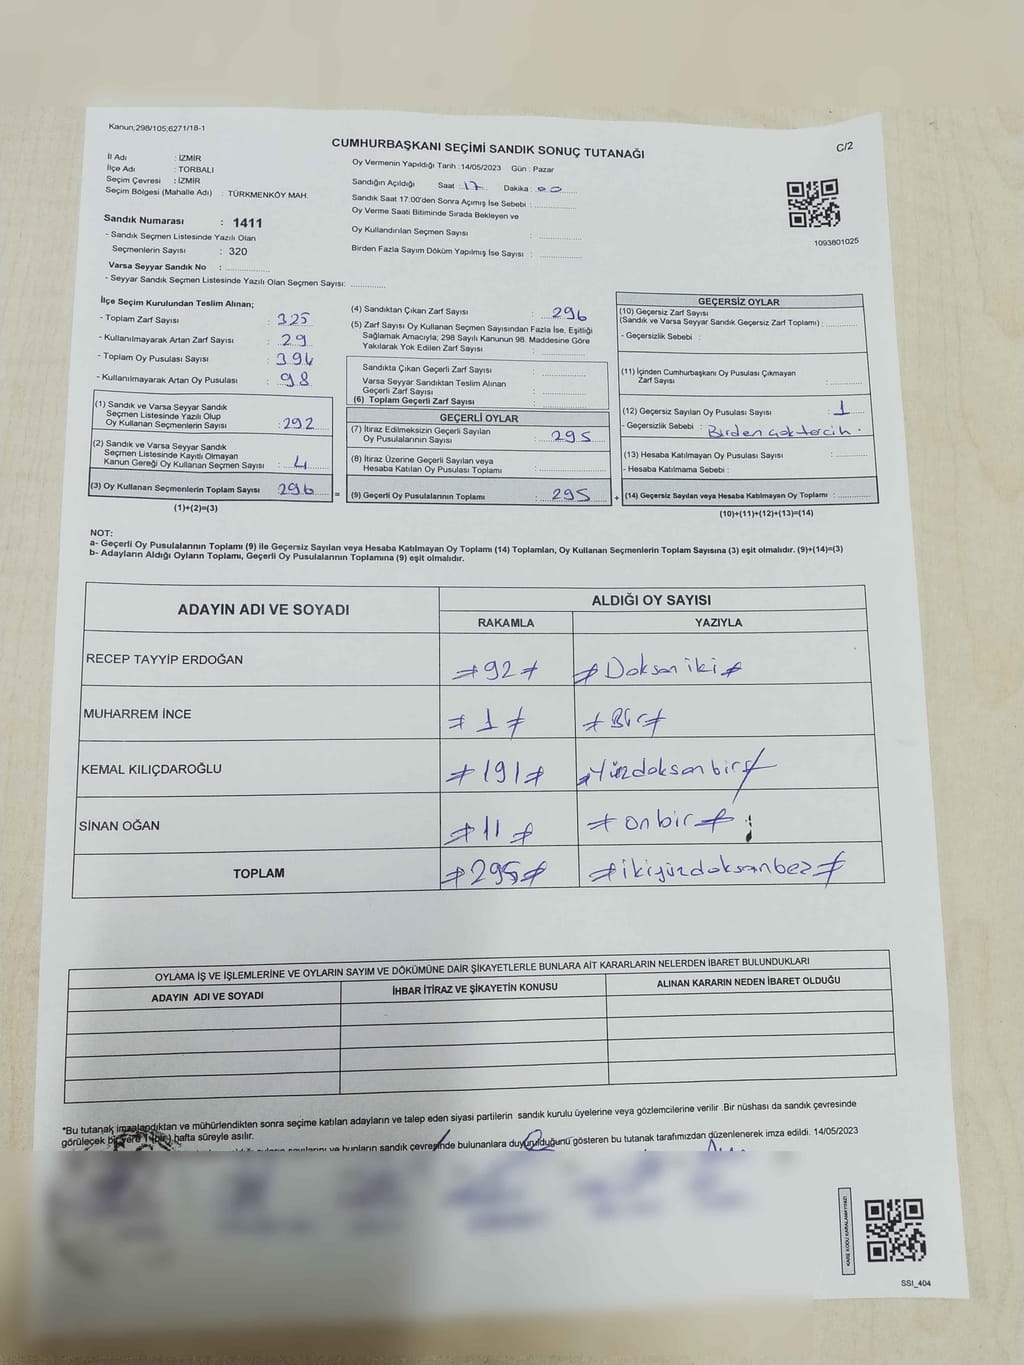 Kanun;298/105;6271/18-1
CUMHURBAŞKANI SEÇİMİ SANDIK SONUÇ TUTANAĞI
C/2
İl Adı : İZMİR
İlçe Adı : TORBALI
Seçim Çevresi : İZMİR
Seçim Bölgesi (Mahalle Adı) : TÜRKMENKÖY MAH.
Sandık Numarası : 1411
- Sandık Seçmen Listesinde Yazılı Olan
Seçmenlerin Sayısı : 320
Varsa Seyyar Sandık No :
- Seyyar Sandık Seçmen Listesinde Yazılı Olan Seçmen Sayısı:
Oy Vermenin Yapıldığı Tarih :14/05/2023 Gün : Pazar
Sandığın Açıldığı Saat : 17 Dakika : 00
Sandık Saat 17:00'den Sonra Açımış İse Sebebi :
Oy Verme Saati Bitiminde Sırada Bekleyen ve
Oy Kullandırılan Seçmen Sayısı :
Birden Fazla Sayım Döküm Yapılmış İse Sayısı :
1093801025
İlçe Seçim Kurulundan Teslim Alınan;
- Toplam Zarf Sayısı : 325
- Kullanılmayarak Artan Zarf Sayısı : 29
- Toplam Oy Pusulası Sayısı : 394
- Kullanılmayarak Artan Oy Pusulası : 98
(1) Sandık ve Varsa Seyyar Sandık
Seçmen Listesinde Yazılı Olup
Oy Kullanan Seçmenlerin Sayısı : 292
(2) Sandık ve Varsa Seyyar Sandık
Seçmen Listesinde Kayıtlı Olmayan
Kanun Gereği Oy Kullanan Seçmen Sayısı : 4
(3) Oy Kullanan Seçmenlerin Toplam Sayısı : 296
(1)+(2)=(3)
(4) Sandıktan Çıkan Zarf Sayısı : 296
(5) Zarf Sayısı Oy Kullanan Seçmen Sayısından Fazla İse, Eşitliği
Sağlamak Amacıyla; 298 Sayılı Kanunun 98. Maddesine Göre
Yakılarak Yok Edilen Zarf Sayısı :
Sandıkta Çıkan Geçerli Zarf Sayısı :
Varsa Seyyar Sandıktan Teslim Alınan
Geçerli Zarf Sayısı :
(6) Toplam Geçerli Zarf Sayısı :
GEÇERLİ OYLAR
(7) İtiraz Edilmeksizin Geçerli Sayılan
Oy Pusulalarının Sayısı : 295
(8) İtiraz Üzerine Geçerli Sayılan veya
Hesaba Katılan Oy Pusulası Toplamı :
= (9) Geçerli Oy Pusulalarının Toplamı : 295
GEÇERSİZ OYLAR
(10) Geçersiz Zarf Sayısı
(Sandık ve Varsa Seyyar Sandık Geçersiz Zarf Toplamı) :
- Geçersizlik Sebebi :
(11) İçinden Cumhurbaşkanı Oy Pusulası Çıkmayan
Zarf Sayısı :
(12) Geçersiz Sayılan Oy Pusulası Sayısı : 1
- Geçersizlik Sebebi : Birden çok tercih.
(13) Hesaba Katılmayan Oy Pusulası Sayısı :
- Hesaba Katılmama Sebebi :
+ (14) Geçersiz Sayılan veya Hesaba Katılmayan Oy Toplamı :
(10)+(11)+(12)+(13)=(14)
NOT:
a- Geçerli Oy Pusulalarının Toplamı (9) ile Geçersiz Sayılan veya Hesaba Katılmayan Oy Toplamı (14) Toplamları, Oy Kullanan Seçmenlerin Toplam Sayısına (3) eşit olmalıdır. (9)+(14)=(3)
b- Adayların Aldığı Oyların Toplamı, Geçerli Oy Pusulalarının Toplamına (9) eşit olmalıdır.
ADAYIN ADI VE SOYADI
ALDIĞI OY SAYISI
RAKAMLA YAZIYLA
RECEP TAYYİP ERDOĞAN ≠92≠ ≠Doksan iki≠
MUHARREM İNCE ≠1≠ ≠Bir≠
KEMAL KILIÇDAROĞLU ≠191≠ ≠Yüzdoksan bir≠
SİNAN OĞAN ≠11≠ ≠onbir≠
TOPLAM ≠295≠ ≠ikiyüzdoksanbeş≠
OYLAMA İŞ VE İŞLEMLERİNE VE OYLARIN SAYIM VE DÖKÜMÜNE DAİR ŞİKAYETLERLE BUNLARA AİT KARARLARIN NELERDEN İBARET BULUNDUKLARI
ADAYIN ADI VE SOYADI İHBAR İTİRAZ VE ŞİKAYETİN KONUSU ALINAN KARARIN NEDEN İBARET OLDUĞU
*Bu tutanak imzalandıktan ve mühürlendikten sonra seçime katılan adayların ve talep eden siyasi partilerin sandık kurulu üyelerine veya gözlemcilerine verilir .Bir nüshası da sandık çevresinde
görülecek bir yere 1 (bir) hafta süreyle asılır.
sayılarını ve bunların sandık çevresinde bulunanlara duyurulduğunu gösteren bu tutanak tarafımızdan düzenlenerek imza edildi. 14/05/2023
KARE KODU KARALAMAYINIZ!
SSI_404